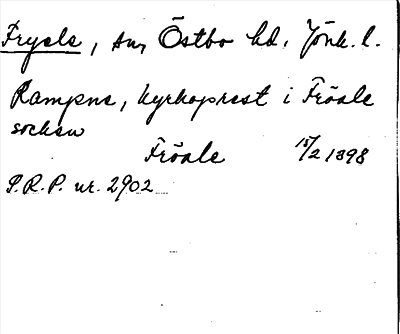 Fryele, sn, Östbo hd. Jönk. l.
Rampne, kyrkoprest i Fröale
socken
Fröale 15/2 1398
S.R.P. nr. 2902